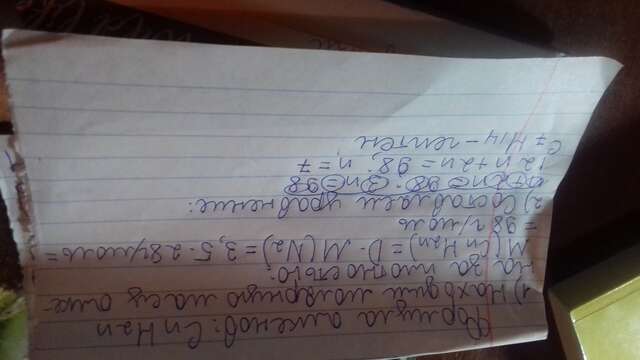 Формула алкенов: CnH2n
1) Находим молярную масу алке-
на за плотностью:
M(CnH2n) = D · M(N2) = 3,5 · 28г/моль =
= 98 г/моль
2) Составляем уравнение:
n+2n=98; 3n=98
12n+2n=98; n=7
C7H14 - гептен